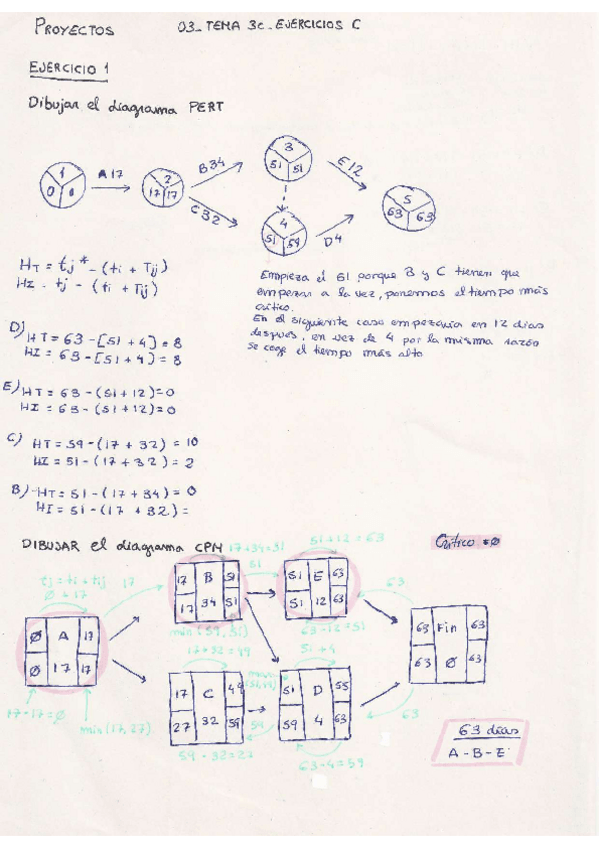 PROYECTOS
03_ TEMA 3c_ EJERCICIOS C
EJERCICIO 1
Dibujar el diagrama PERT
1
0 0
A17
2
17 17
B34
C32
3
51 51
4
51 59
E12
D4
5
63 63
HT = tj* - (ti + Tij)
HI = tj - (ti + Tij)
Empieza el 51 porque B y C tienen que
empezar a la vez, ponemos el tiempo más
crítico.
En el siguiente caso empezaría en 12 días
después, en vez de 4 por la misma razón
se coge el tiempo más alto
D) HT = 63 - [51 + 4] = 8
HI = 63 - [51 + 4] = 8
E) HT = 63 - (51 + 12) = 0
HI = 63 - (51 + 12) = 0
C) HT = 59 - (17 + 32) = 10
HI = 51 - (17 + 32) = 2
B) HT = 51 - (17 + 34) = 0
HI = 51 - (17 + 32) =
DIBUJAR el diagrama CPM
17+34=51
51+12=63
Crítico = Ø
tj = ti + tij
Ø + 17
17
51
63
17 B 51
17 34 51
51 E 63
51 12 63
min (59, 51)
63-12=51
17+32=49
51+4
Ø A 17
Ø 17 17
63 Fin 63
63 Ø 63
17 C 49
27 32 59
51 D 55
59 4 63
59
63
17-17=Ø
min (17, 27)
59-32=27
63-4=59
63 días
A-B-E